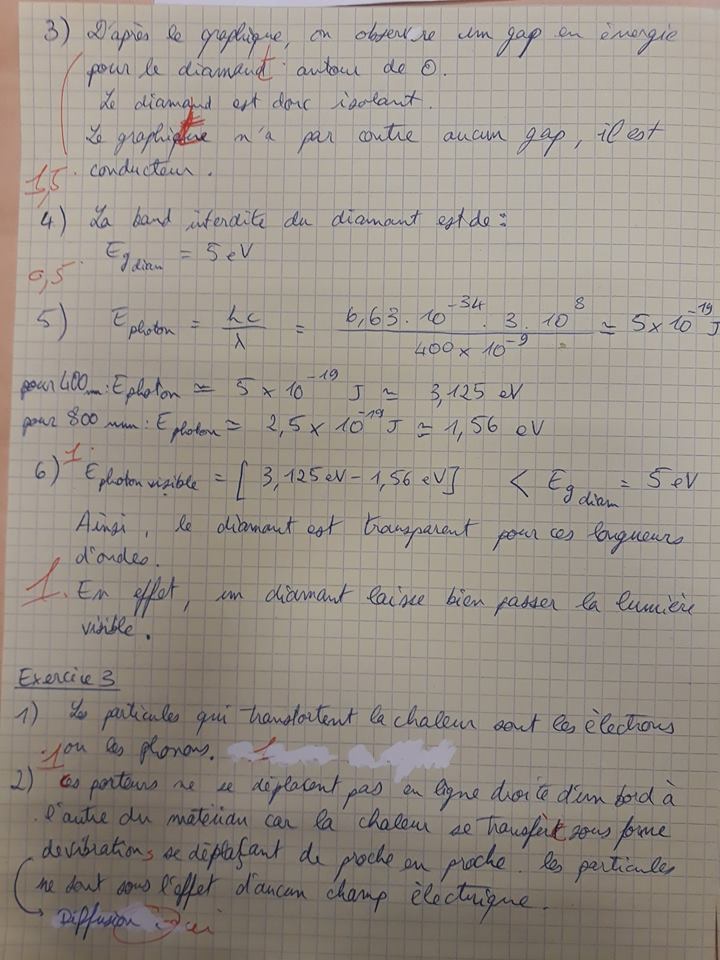 3) D'après le graphique, on observe un gap en énergie
pour le diamant autour de 0.
Le diamand est donc isolant.
Le graphite n'a par contre aucun gap, il est
1,5 conducteur.
4) La band interdite du diamant est de :
Eg diam = 5 eV
0,5
5) E photon = hc/λ = 6,63 . 10^-34 . 3 . 10^8 / 400 x 10^-9 ≃ 5 x 10^-19 J
pour 400 nm : E photon ≃ 5 x 10^-19 J ≃ 3,125 eV
pour 800 nm : E photon ≃ 2,5 x 10^-19 J ≃ 1,56 eV
1
6) E photon visible = [ 3,125 eV - 1,56 eV ] < Eg diam = 5 eV
Ainsi, le diamant est transparent pour ces longueurs
d'ondes.
1. En effet, un diamant laisse bien passer la lumière
visible.
Exercice 3
1) Les particules qui transportent la chaleur sont les électrons
1 ou les phonons. 1
2) Ces porteurs ne se déplacent pas en ligne droite d'un bord à
l'autre du matériau car la chaleur se transfert sous forme
de vibrations se déplaçant de proche en proche. les particules
ne sont sous l'effet d'aucun champ électrique.
Diffusion oui